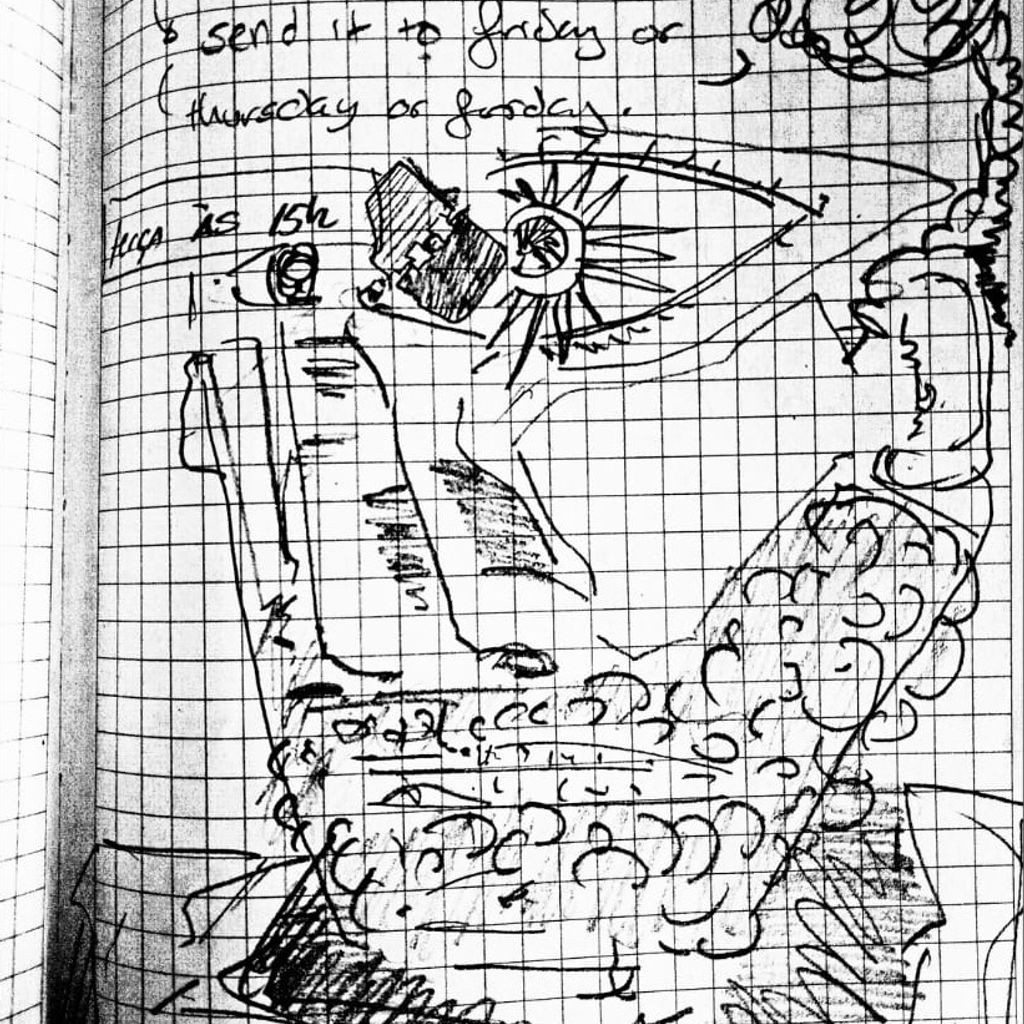 send it to friday or
thursday or forday.
às 15h